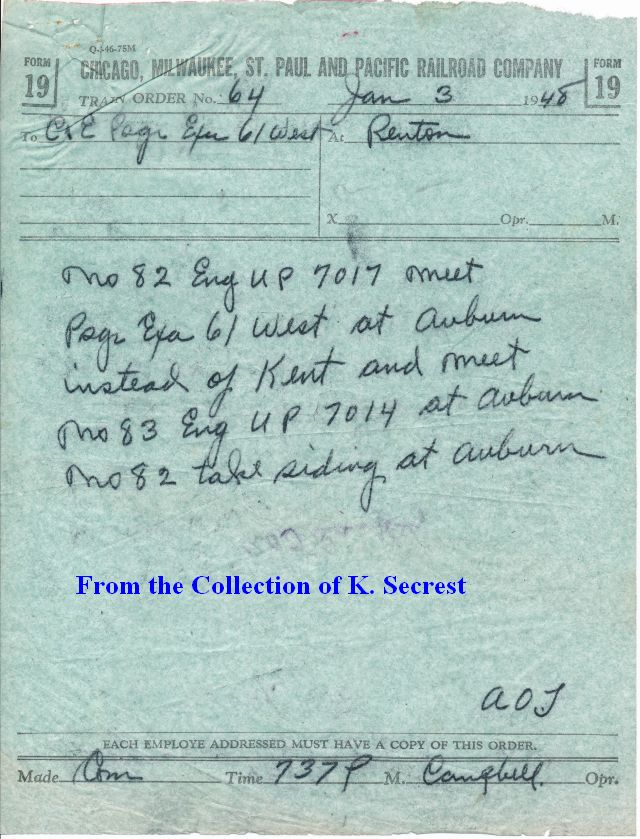 Q-1-46-75M
FORM 19
CHICAGO, MILWAUKEE, ST. PAUL AND PACIFIC RAILROAD COMPANY
FORM 19
TRAIN ORDER No. 64 Jan 3 1948
To C&E Psgr Exa 61 West At Renton
X Opr. M.
No 82 Eng UP 7017 meet
Psgr Exa 61 West at Auburn
instead of Kent and meet
No 83 Eng UP 7014 at Auburn
No 82 take siding at Auburn
From the Collection of K. Secrest
AOJ
EACH EMPLOYE ADDRESSED MUST HAVE A COPY OF THIS ORDER.
Made Com Time 737 P M. Campbell Opr.